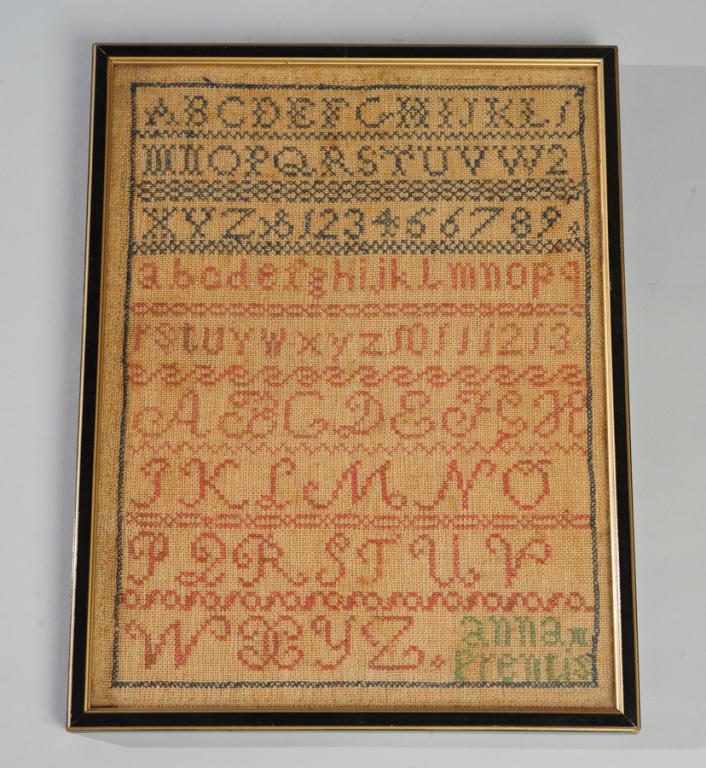 ABCDEFGHIJKL1
MNOPQRSTUVW2
XYZ&123456789.
abcdefghijklmnopq
rstuvwxyz10111213
ABCDEFGH
IKLMNO
PQRSTUV
WXYZ.
anna m
Prentis